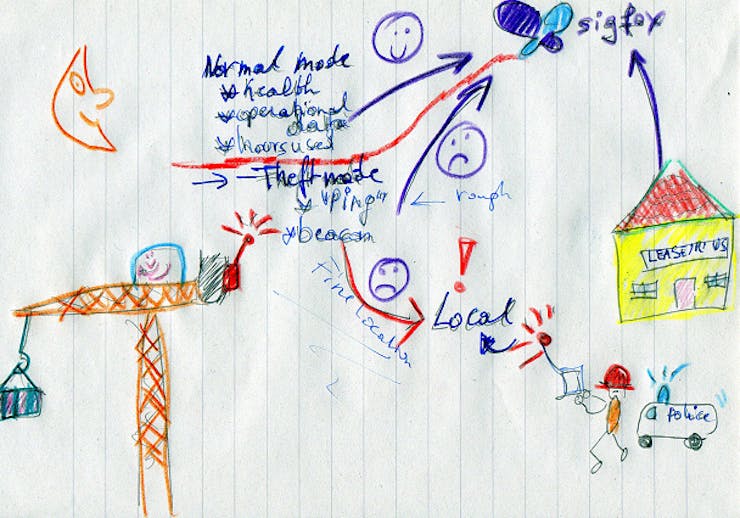 sigfox
Normal mode
* health
* operational
data
* hours used
→ - Theft mode
* "ping"
* beacon
← rough
Fine Location
Local
LEASE IT US
Police